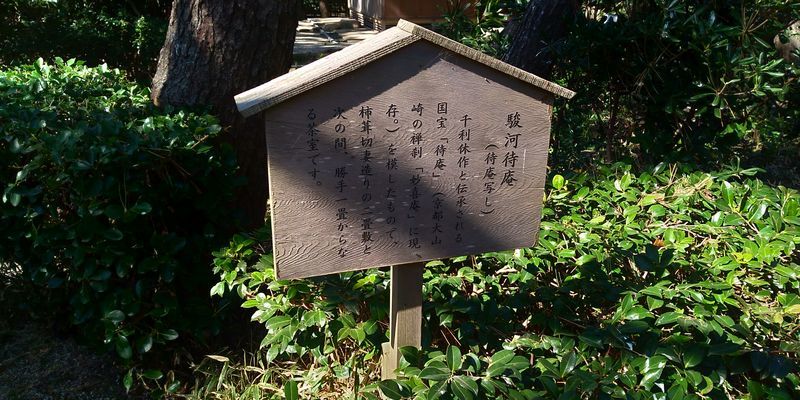 駿河待庵
（待庵写し）
千利休作と伝承される
国宝「待庵」（京都大山
崎の禅刹「妙喜庵」に現
存。）を模したもので、
杮葺切妻造りの二畳敷と
次の間、勝手一畳からな
る茶室です。